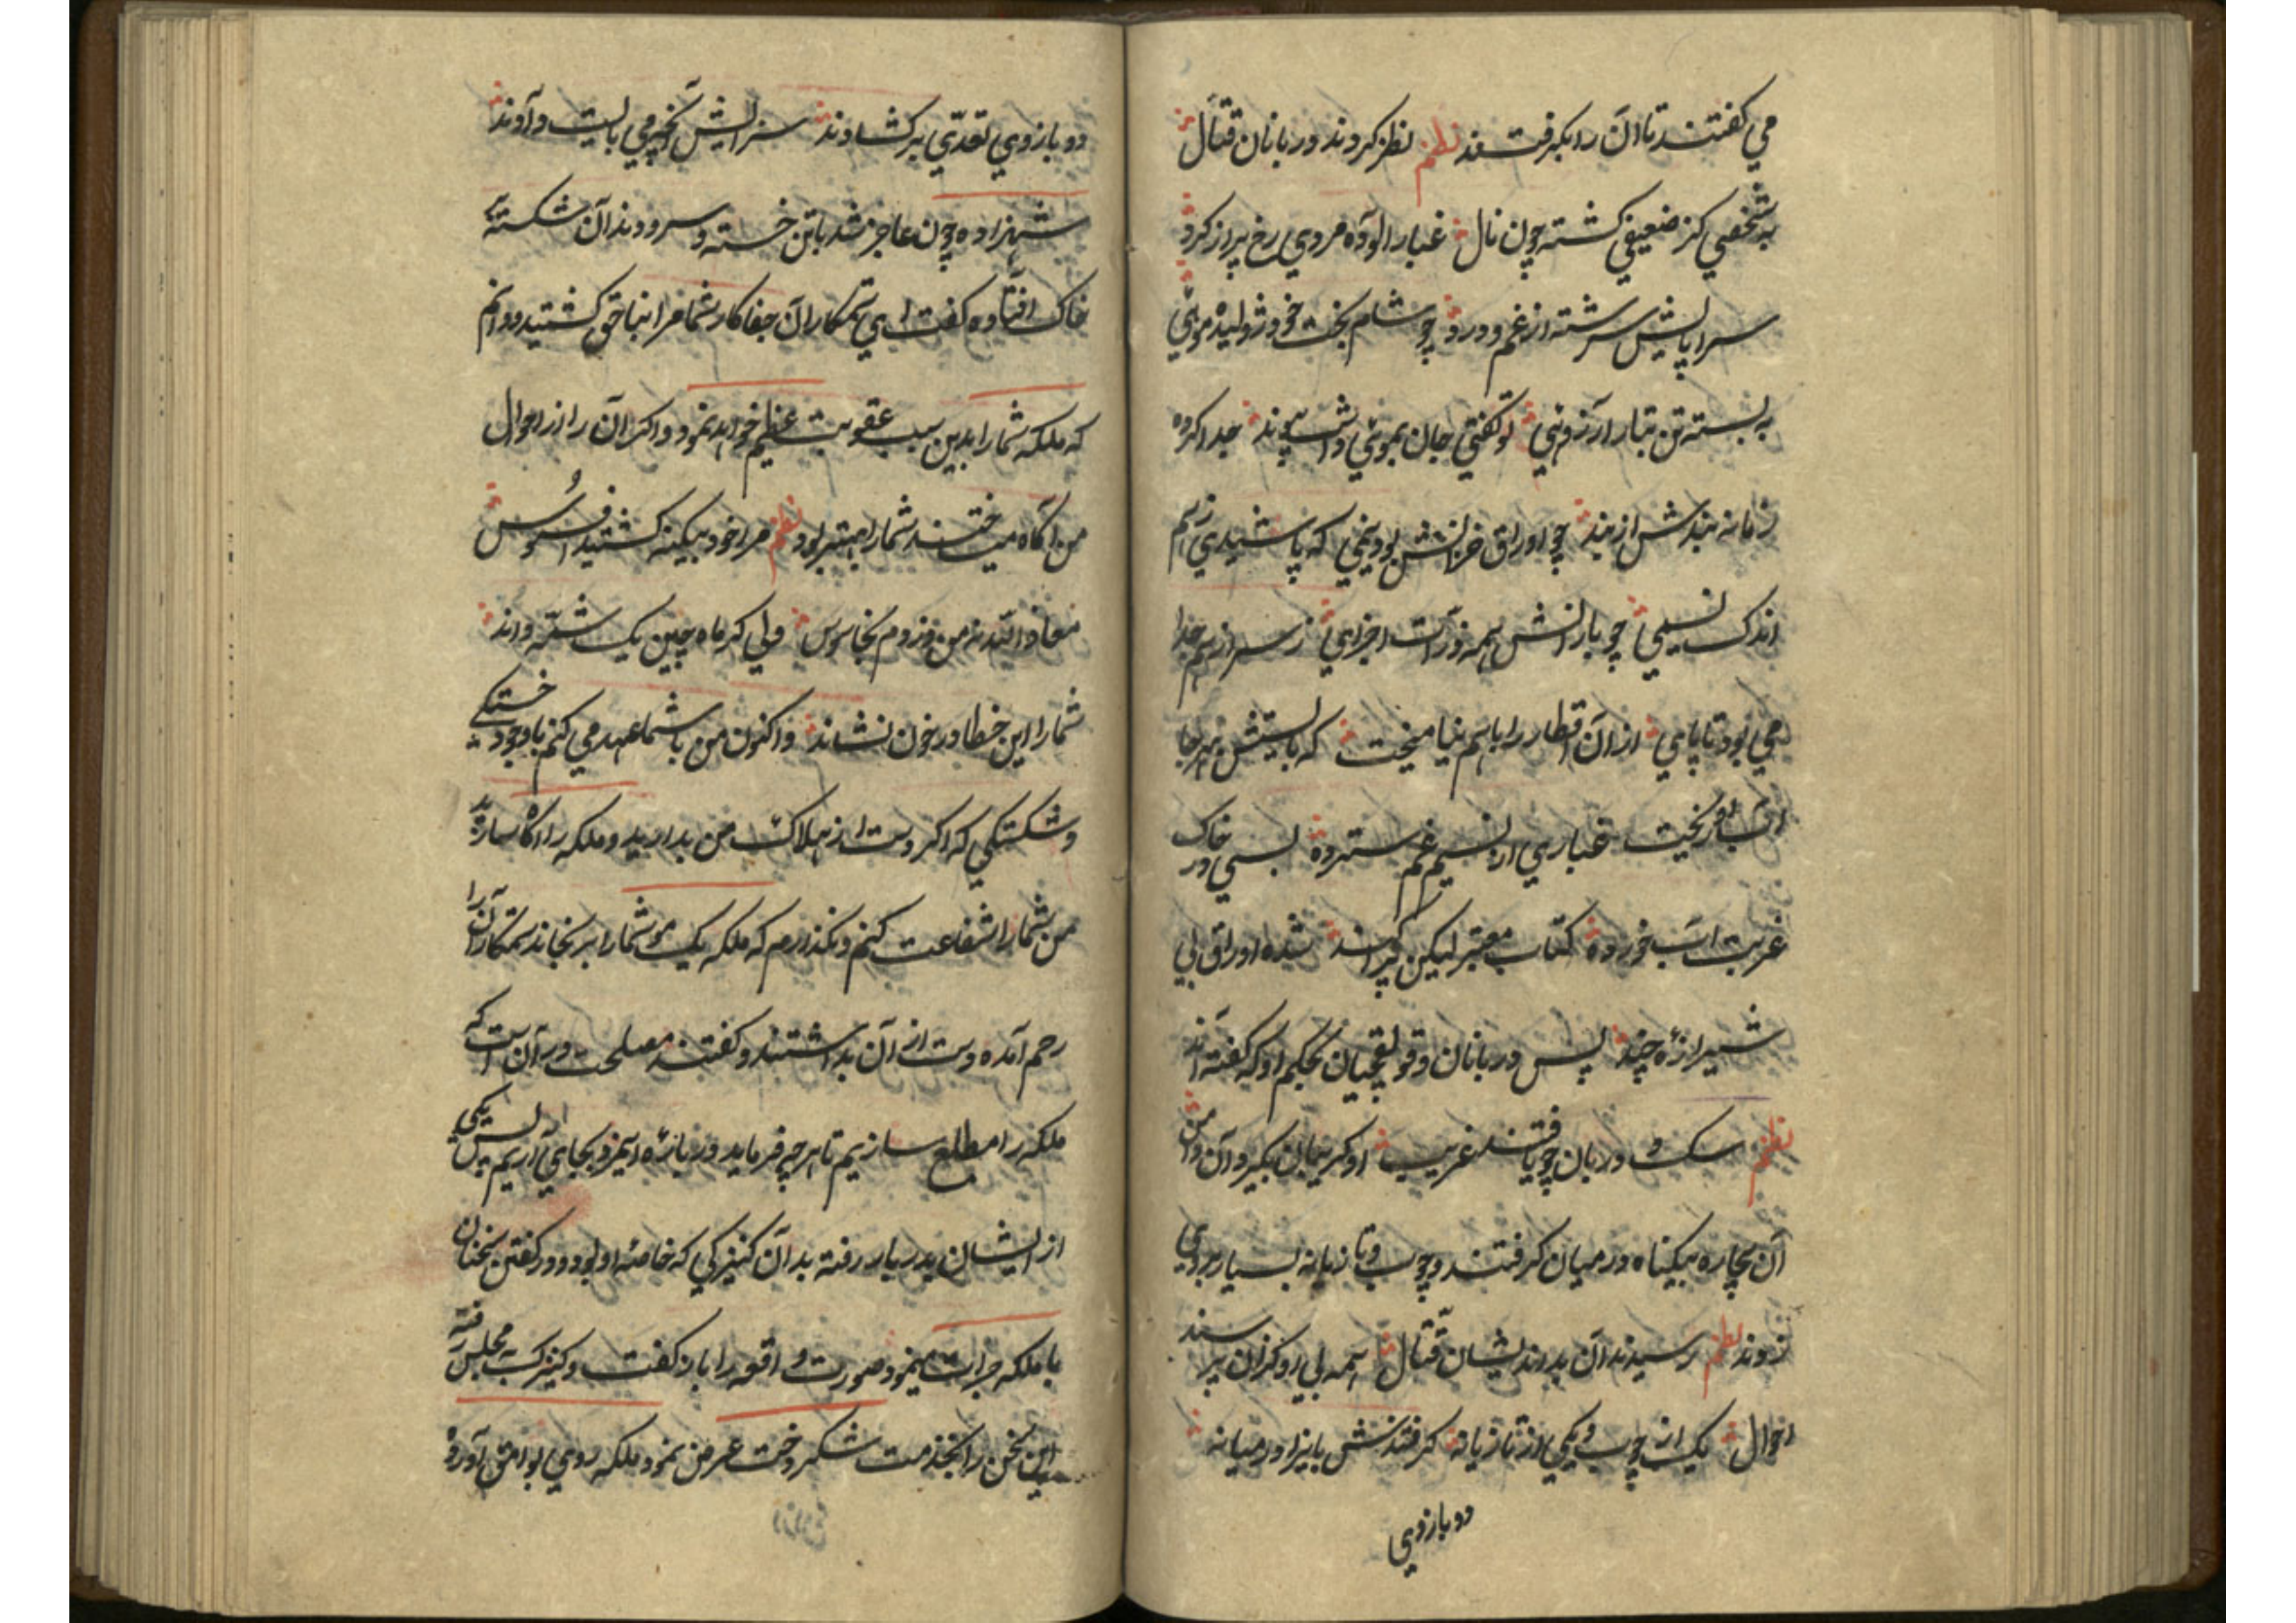 می گفتند تا آن را بگرفتند نظم نظر کردند دربانان قتال
به شخصی کز ضعیفی گشته چون نال غبار آلوده مردی رخ پر از گرد
سراپایش سرشته از غم و درد چو شام بخت خود ژولیده مویی
به بسته تن بتار آرزویی تو گفتی جان بمویی داشت پیوند جدا کرده
زمانه بند بندش از بند چو اوراق خزانش بود بیخی که پاشیدی ز هم
اندک نسیمی چو بارانش همه ذرات اجزای ز سر از هم جدا
می بود تا پای از آن اقطار را باهم نیامیخت که بایستش بهر جا
آب او ریخت غباری از نسیم غم سترده بسی در خاک
غربت آب خورده کتاب معتبر لیکن پراکنده شده اوراق بی
شیرازه چند پس دربانان و قولقچیان بحکم او که گفته اند
نظم سگ و دربان چو یافتند غریب او گریبان بگیرد آن دامن
آن بیچاره بیگناه در میان گرفتند و چوب و تازیانه بسیار بر وی
زدند نظم رسیدند آن بداندیشان قتال همه بی او کزان پرسند
احوال یک از چوب و یکی از تازیانه گرفتندش بایزا در میانه
دو بازوی
دو بازوی تعدی برگشادند سزایش آنچه می بایست دادند
شهزاده چون عاجز شد با تن خسته و سر و دندان شکسته
خاک افتاده گفت ای ستمکاران جفاکار شما مرا بناحق کشتید و دانم
که ملکه شما را بدین سبب عقوبت عظیم خواهد نمود و اگر آن را از احوال
من آگاه میساختند شما را بهتر بود نظم مرا خود بیگنه کشتید افسوس
معاذ الله نه من دزدم نه جاسوس ولی گر ماه چین یک شمه داند
شما را این خطا در خون نشاند و اکنون من با شما عهد می کنم باوجود خستگی
و شکستگی که اگر دست از هلاک من بدارید و ملکه را آگاه سازید
من شما را شفاعت کنم و نگذارم که ملکه یک مو شما را برنجاند ستمکاران را
رحم آمده دست از آن بداشتند و گفتند مصلحت در آن است که
ملکه را مطلع سازیم تا هر چه فرماید در باره این مرد بجای آریم پس یکی
از ایشان بدربار رفته بدان کنیزکی که خاصه او بود و در گفتن سخنان
با ملکه جرات مینمود صورت واقعه را باز گفت و کنیزک به مجلس رفته
این سخن را بخدمت شکر دخت عرض نمود ملکه روی بوامق آورد و